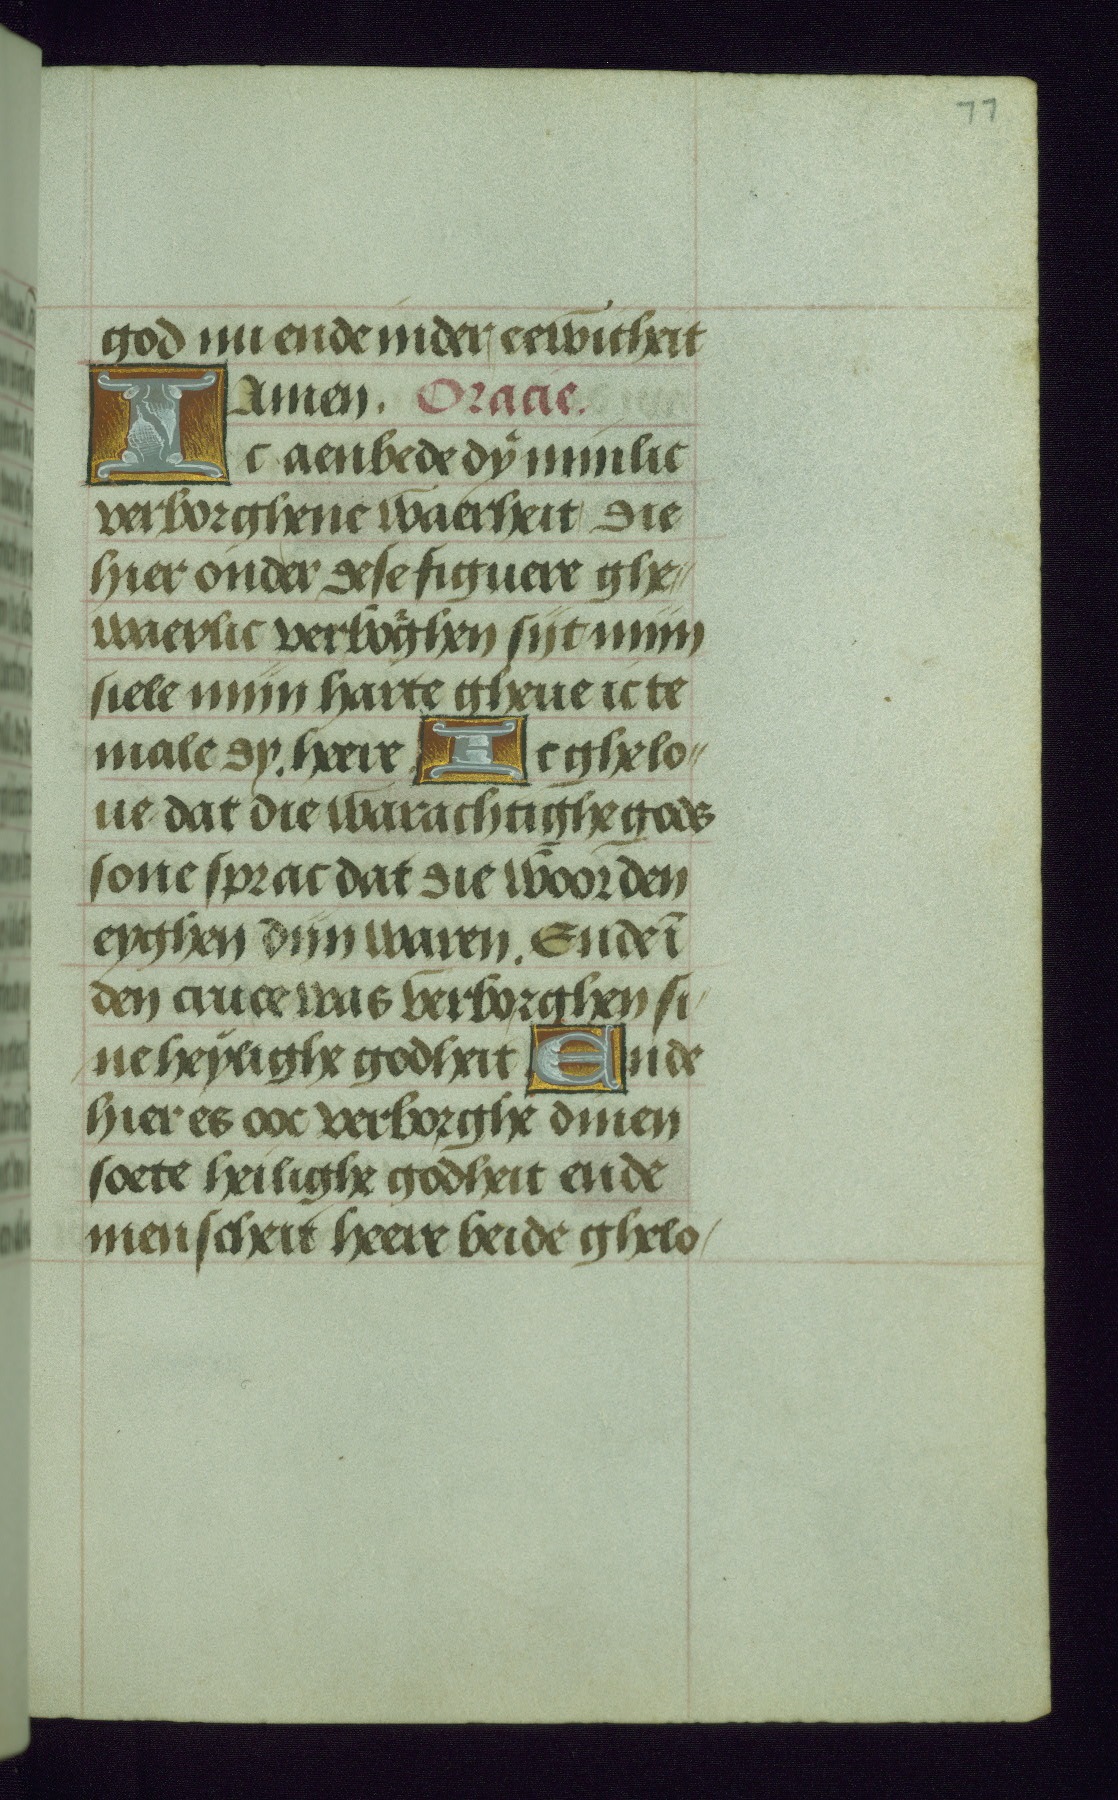 77
god nu ende in der eewicheit
Amen. Oracie.
Ic aenbede dy minlic
verborghene waerheit die
hier onder dese figuere ghe〃
waerlic verborghen sijt mijn
siele mijn harte gheue ic te
male dy. heere Ic ghelo〃
ue dat die warachtighe gods
sone sprac dat die woorden
eyghen dijn waren. Ende ī
den cruce was verborghen si/
ne heylighe godheit Ende
hier es ooc verborghē dinen
soete heilighe godheit ende
menscheit heere beide ghelo/